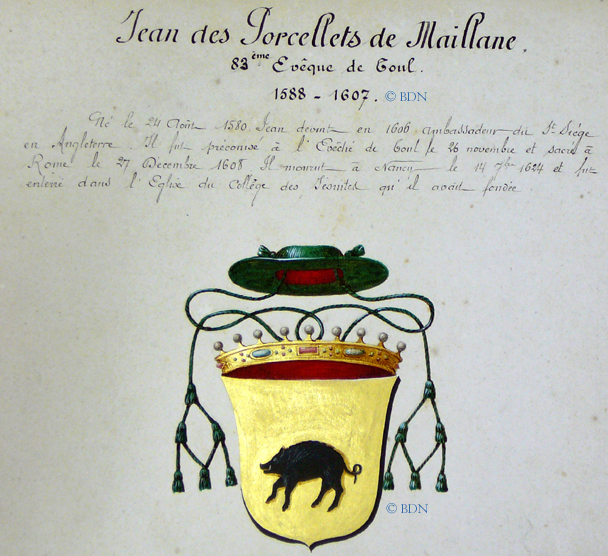 Jean des Porcellets de Maillane.
83ème Evêque de Toul.
1588 - 1607. © BDN
Né le 24 Août 1580 Jean devint en 1606 ambassadeur du St Siége
en Angleterre. Il fut préconisé à l'Evêché de Toul le 26 novembre et sacré à
Rome le 27 Decembre 1608 Il mourut à Nancy le 14 7bre 1624 et fut
enterré dans l'Eglise du Collège des Jesuites qu'il avait fondée
© BDN